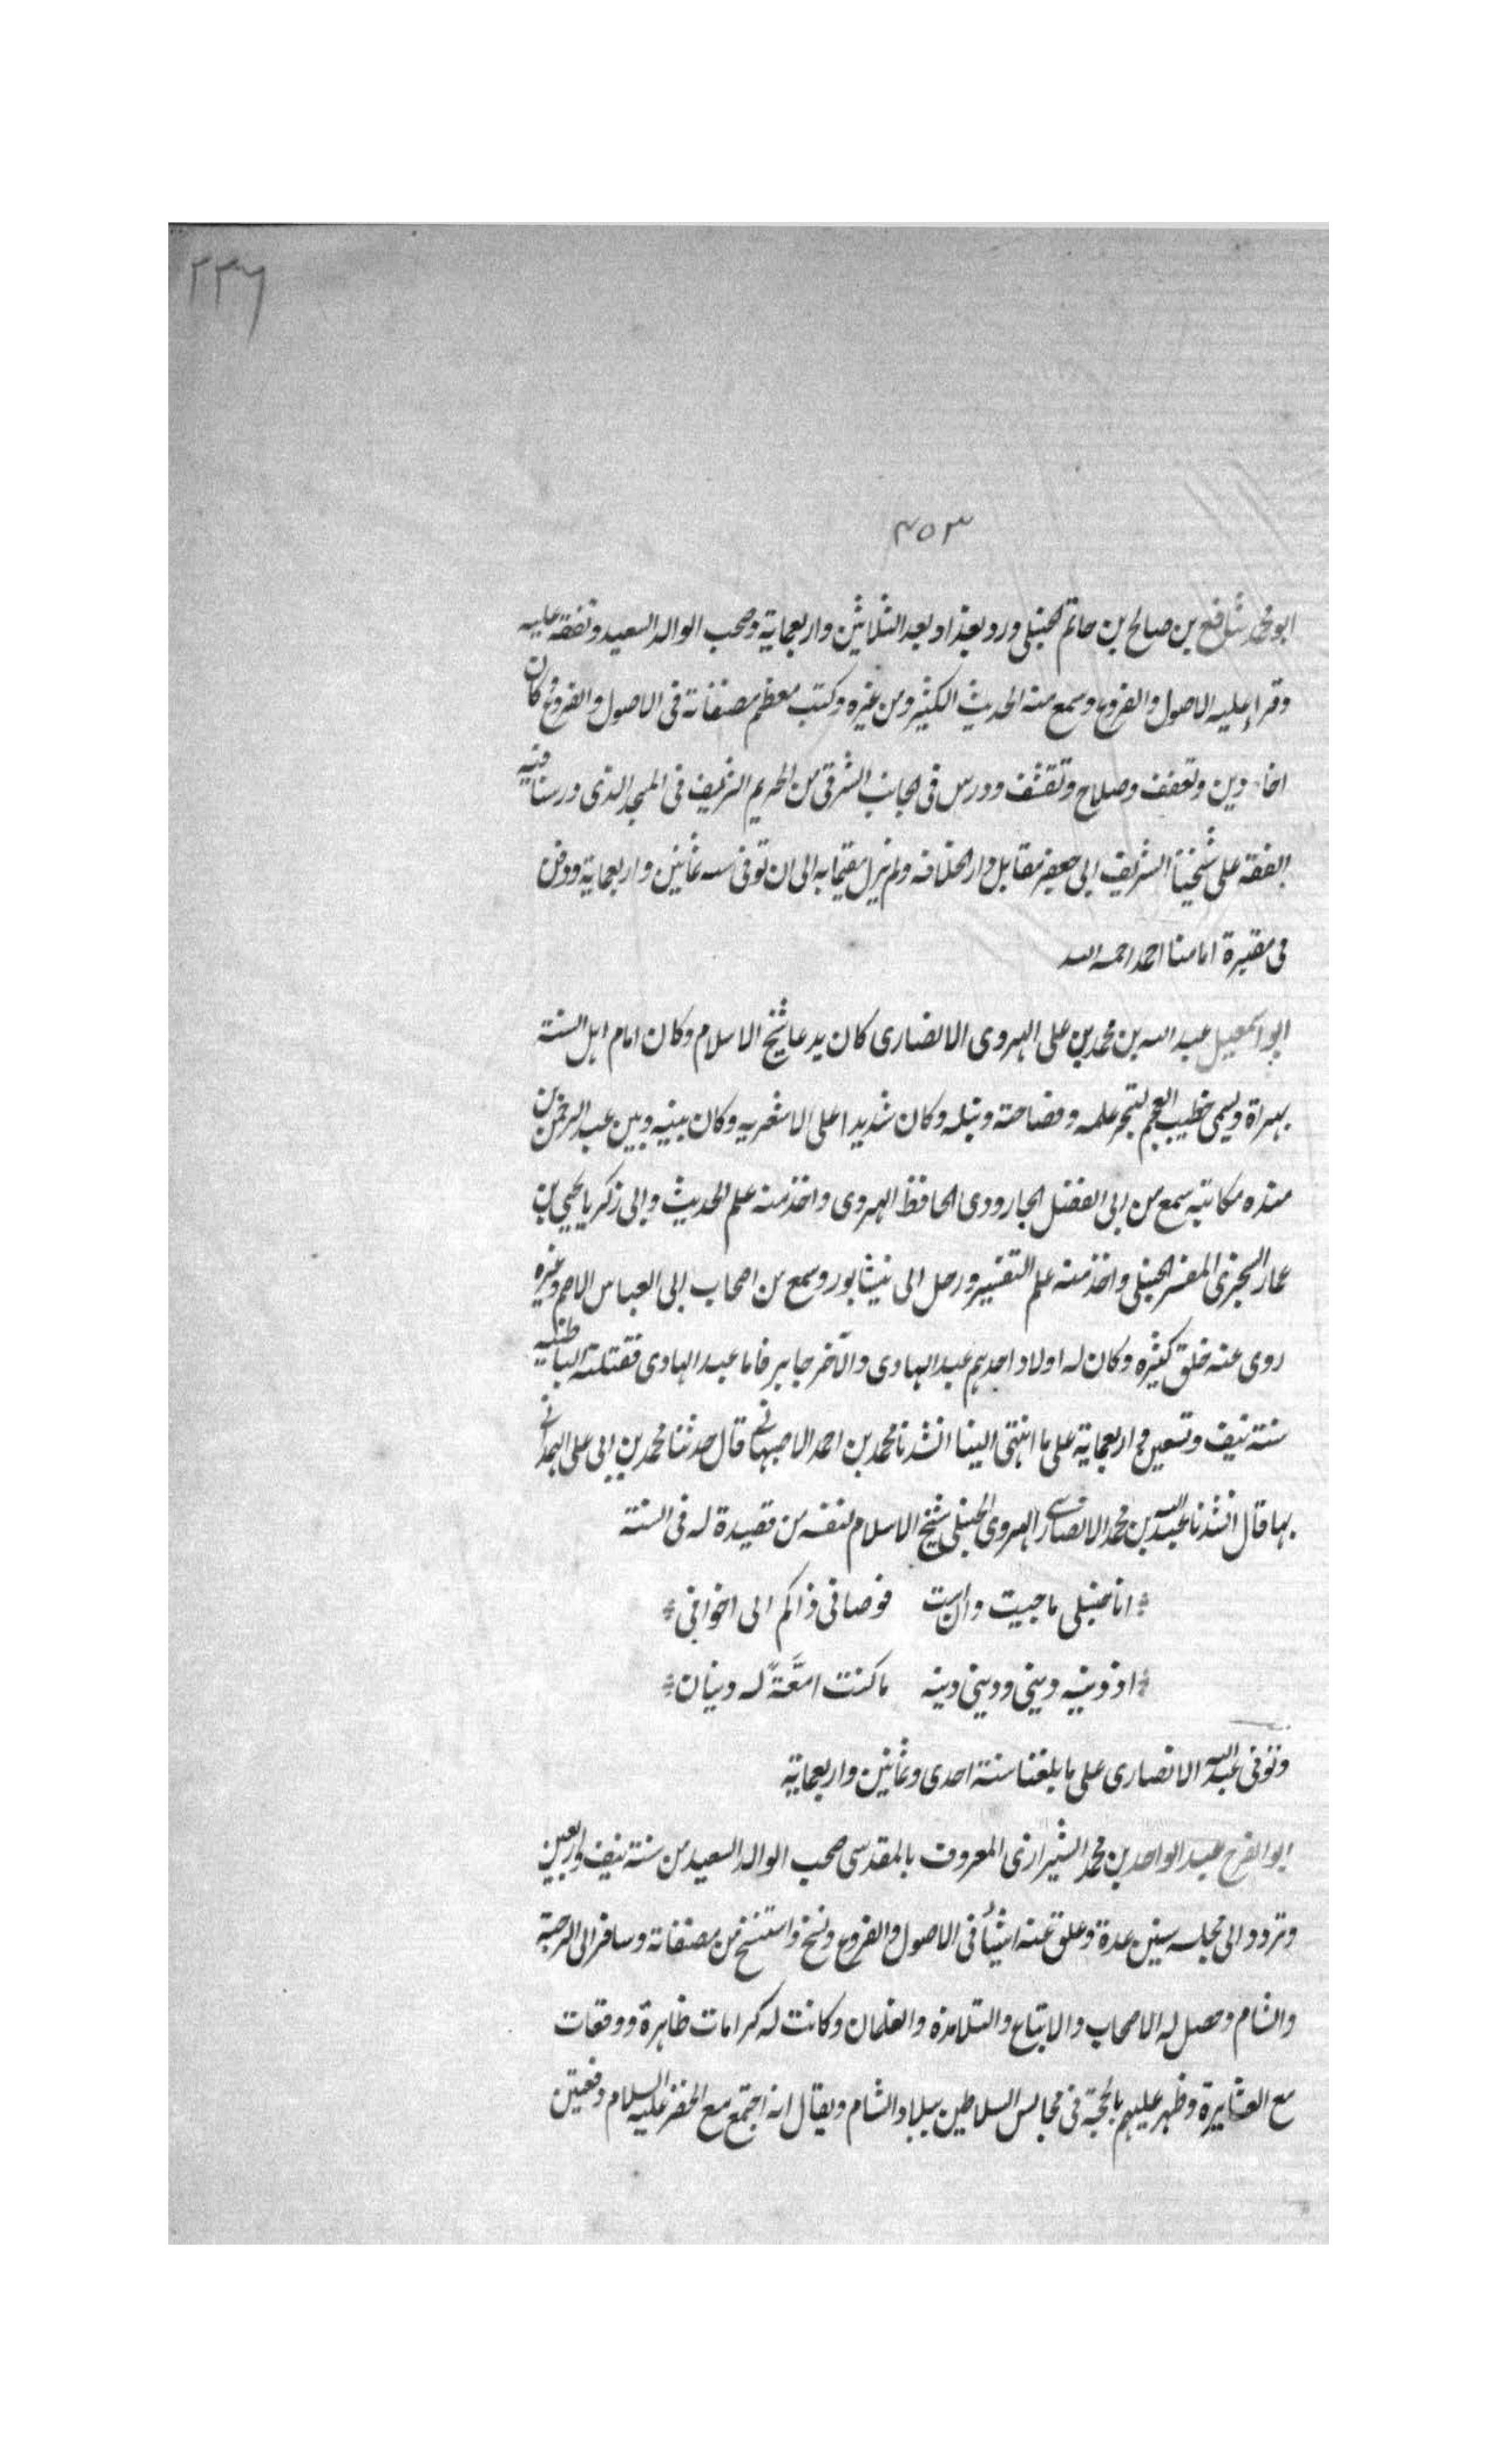 ٢٣٦
٤٥٣
ابو محمد شافع بن صالح بن حاتم الحنبلى ورد بغداد بعد الثلاثين واربعماية وصحب الوالد السعيد وتفقه عليه
وقراء عليه الاصول والفروع وسمع منه الحديث الكثير ومن غيره وكتب معظم مصنفاته فى الاصول والفروع كان
اخا دين وتعفف وصلاح وتقشف ودرس فى الجانب الشرقى من الحريم الشريف فى المسجد الذى درسنا فيه
الفقه على شيخنا الشريف ابى جعفر مقابل دار الخلافه ولم يزل مقيما به الى ان توفى سنه ثمانين واربعماية ودفن
فى مقبرة امامنا احمد رحمه الله
ابو اسمعيل عبد الله بن محمد بن على الهروى الانصارى كان يدعا شيخ الاسلام وكان امام اهل السنة
بهراة ويسمى خطيب العجم لتبحر علمه وفصاحته ونبله وكان شديدا على الاشعريه وكان بينه وبين عبد الرحمن بن
منده مكاتبة سمع من ابى الفضل الجارودى الحافظ الهروى واخذ منه علم الحديث وابى زكريا يحيى بن
عمار السجزى المفسر الحنبلى واخذ منه علم التفسير ورحل الى نيشابور وسمع من اصحاب ابى العباس الاصم وغيره
روى عنه خلق كثيره وكان له اولاد احدهم عبد الهادى والآخر جابر فاما عبد الهادى فقتلته الباطنيه
سنة نيف وتسعين واربعماية على ما انتهى الينا انشدنا محمد بن احمد الاصبهانى قال حدثنا محمد بن ابى على الهمدانى
بها قال انشدنا عبد الله بن محمد الانصارى الهروى الحنبلى شيخ الاسلام لنفسه من قصيدة له فى السنة
انا حنبلى ما حييت وان امت فوصاتى ذاكم الى اخوانى
اذ دينه دينى ودينى دينه ما كنت امّعَةً له دينان
وتوفى عبد الله الانصارى على ما بلغنا سنة احدى وثمانين واربعماية
ابو الفرج عبد الواحد بن محمد الشيرازى المعروف بالمقدسى صحب الوالد السعيد من سنة نيف واربعين
وتردد الى مجلسه سنين عدة وعلق عنه اشيأ فى الاصول والفروع ونسخ واستنسخ من مصنفاته وسافر الى الرحبة
والشام وحصل له الاصحاب والاتباع والتلامذه والغلمان وكانت له كرامات ظاهرة ووقعات
مع العشايرة وظهر عليهم بالحجة فى مجالس السلاطين ببلاد الشام ويقال انه اجتمع مع الخضر عليه السلام دفعتين